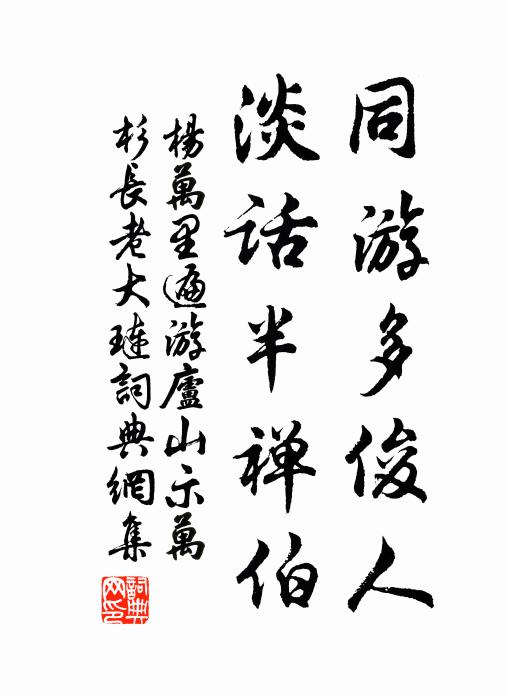 同游多俊人
淡话半禅伯
楊萬里遍游廬山示萬
杉長老大璉詞典網集
詞典网印